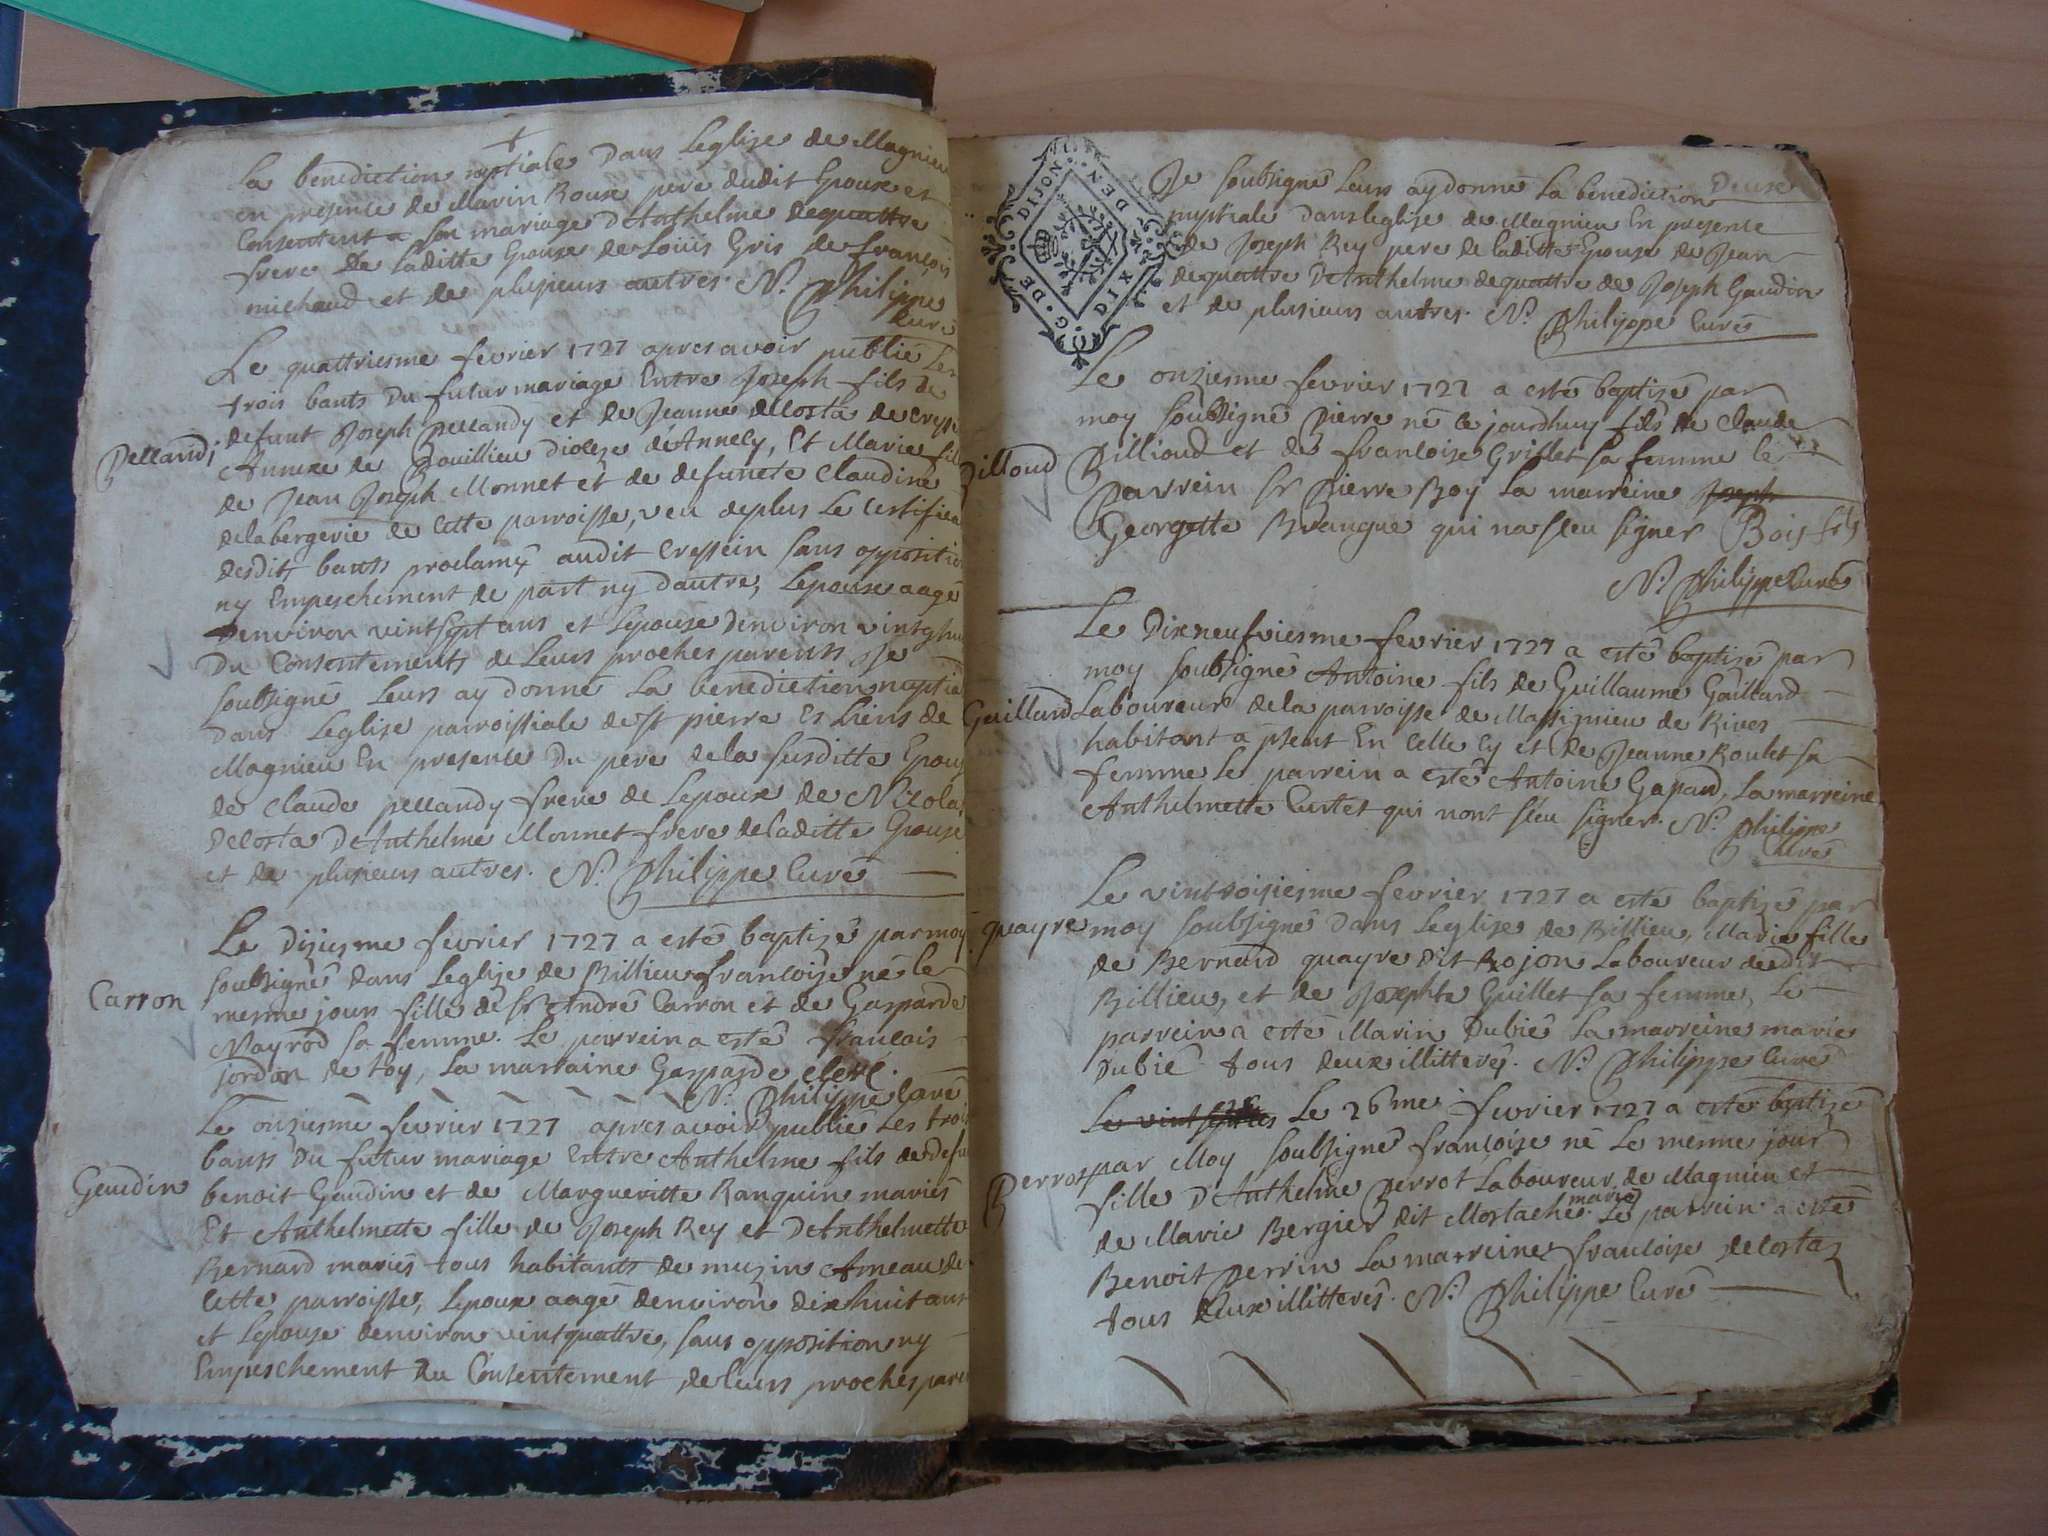 La benediction nuptiale dans Leglise de Magnieu
en presence de Marin Roux pere dudit Epoux et
Consentent a son mariage D'Anthelme dequattre
frere de laditte Epouse de Loüis Gris de françois
michaud et de plusieurs autres. N. Philippe
Curé
Pellandi
Le quattriesme fevrier 1727 apres avoir publié Les
trois bants Du futur mariage Entre Joseph fils de
defunt Joseph pellandy et de Jeanne decosta de
Annexe de Pouillieu dioceze d'Annecy, Et Marie
de Jean Joseph Monnet et de defuncte Claudine
delabergerie de cette parroisse, veu deplus Le Certifica
desdits bants proclamé audit Cressein sans oppositio
ny Empeschement de part ny dautre, Lepoux aagé
denviron vint sept ans et Lepouse denviron
Du Consentements de Leurs proches parents, Je
soubsigné Leurs ay donné La benediction nuptia
Dans Leglise parroissiale de st pierre Es Liens de
Magnieu En presence Du pere de la susditte Epous
de Claude pellandy frere de Lepoux de Nicola
Decosta D'Anthelme Monnet frere de laditte Epouse
et de plusieurs autres. N. Philippe Curé
Carron
Le Diziesme fevrier 1727 a esté baptizé par moy
soubsigné dans Leglize de Billieu françoise né le
mesme jour fille de Sr André Carron et de Gasparde
Mayrod sa femme. Le parrein a esté francois
jordan de Loy, La marraine Gasparde
N. Philippe Curé
Gaudin
Le onziesme fevrier 1727 apres avoir publié Les trois
bants Du futur mariage Entre Anthelme fils de Defu
benoit Gaudin et de Margueritte Ranquin mariés
Et Anthelmette fille de Joseph Rey et D'Anthelmette
Bernard mariés tous habitants de muzin Ameau de
Cette parroisse, Lepoux aagé denviron dixhuit ans
et Lepouse denviron vintquattre, sans opposition ny
Empeschement du Consentement de leurs proches pare
G. DE DIJON
DEN. DIX
Deux
Je soubsigné Leurs ay donné La benediction
nuptiale dans leglise de Magnieu En presence
de Joseph Rey pere de laditte Epouse de Jean
dequattre D'Anthelme dequattre de Joseph Gaudin
et de plusieurs autres. N. Philippe Curé
Billoud
Le onziesme fevrier 1727 a esté baptizé par
moy soubsigné Pierre né ce jourdhuy fils de Claude
Billioud et de françoise Grillet sa femme le
Parrein Sr Pierre Boy La marreine Joseph
Georgette Brangue qui na sceu signer Bois fils
N. Philippe Curé
Gaillard
Le Dixneufviesme fevrier 1727 a esté baptizé par
moy soubsigné Antoine fils de Guillaume Gaillard
Laboureur de la parroisse de Massignieu de Rives
habitant a psent En Celle Cy et de Jeanne Roulet sa
femme Le parrein a esté Antoine Gapand, La marreine
Anthelmette Curtet qui nont sceu signer. N. Philippe
Curé
quayre
Le vintroisiesme fevrier 1727 a esté baptizé par
moy soubsigné Dans Leglise de Billieu, Marie fille
de Bernard quayre dit Rojon Laboureur dedit
Billieu, et de Josephte Guillet sa femme, Le
parrein a esté Marin Dubié La marreine marie
Dubié tous deux illitterés. N. Philippe Curé
Perrot
Le vint Le 26me fevrier 1727 a esté baptizé
par Moy soubsigné françoise né Le mesme jour
fille D'Anthelme perrot Laboureur de Magnieu et
de Marie Bergier dit Mostaché mariés Le parrein a esté
Benoit perrin La marreine francoise decosta
tous deux illitterés. N. Philippe Curé